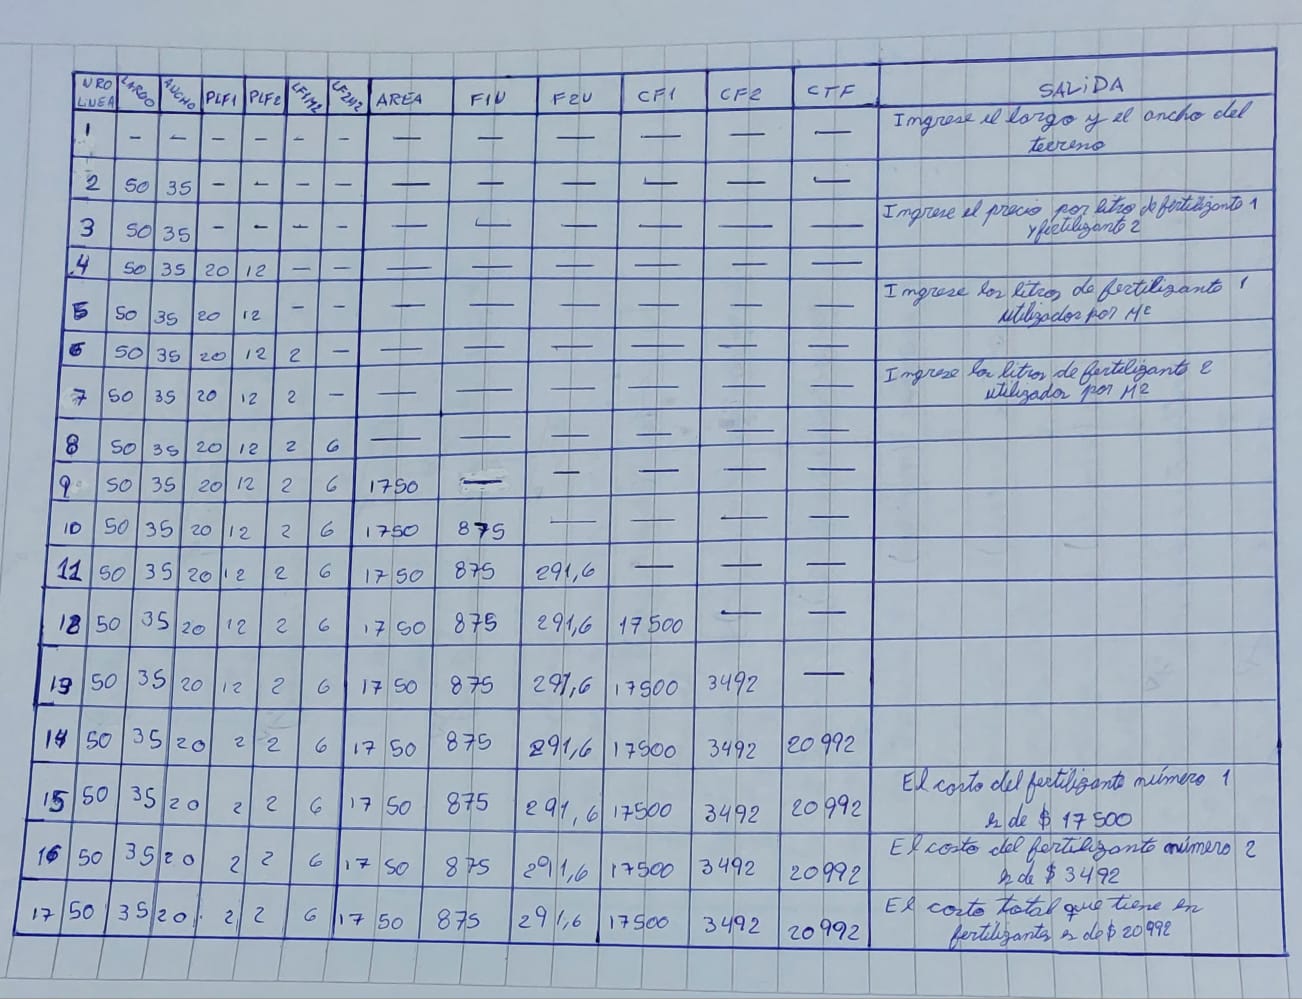 NRO LINEA LARGO ANCHO PLF1 PLF2 LF1M2 LF2M2 AREA F1U F2U CF1 CF2 CTF SALIDA
1 - - - - - - - - - - - - Imgrese el largo y el ancho del
terreno
2 50 35 - - - - - - - - - -
3 50 35 - - - - - - - - - - Imgrese el precio por litro de fertilizante 1
y fertilizante 2
4 50 35 20 12 - - - - - - - -
5 50 35 20 12 - - - - - - - - Imgrese los litros de fertilizante 1
utilizados por M2
6 50 35 20 12 2 - - - - - - -
7 50 35 20 12 2 - - - - - - - Imgrese los litros de fertilizante 2
utilizados por M2
8 50 35 20 12 2 6 - - - - - -
9 50 35 20 12 2 6 1750 - - - - -
10 50 35 20 12 2 6 1750 875 - - - -
11 50 35 20 12 2 6 1750 875 291,6 - - -
12 50 35 20 12 2 6 1750 875 291,6 17500 - -
13 50 35 20 12 2 6 1750 875 291,6 17500 3492 -
14 50 35 20 2 2 6 1750 875 291,6 17500 3492 20992
15 50 35 20 2 2 6 1750 875 291,6 17500 3492 20992 El costo del fertilizante número 1
es de $ 17500
16 50 35 20 2 2 6 1750 875 291,6 17500 3492 20992 El costo del fertilizante número 2
es de $ 3492
17 50 35 20 2 2 6 1750 875 291,6 17500 3492 20992 El costo total que tiene en
fertilizantes es de $ 20992